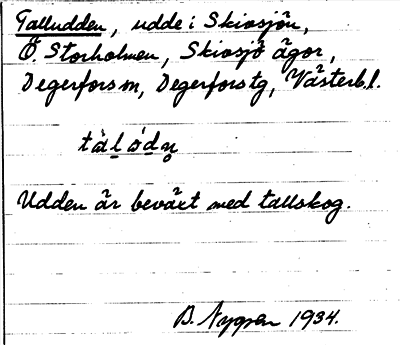 Talludden, udde i Skivsjön,
Ö. Storholmen, Skivsjö ägor,
Degerfors m, Degerfors tg, Västerb.l.
tàlúdn̥
Udden är beväxt med tallskog.
B. Nygren 1934.